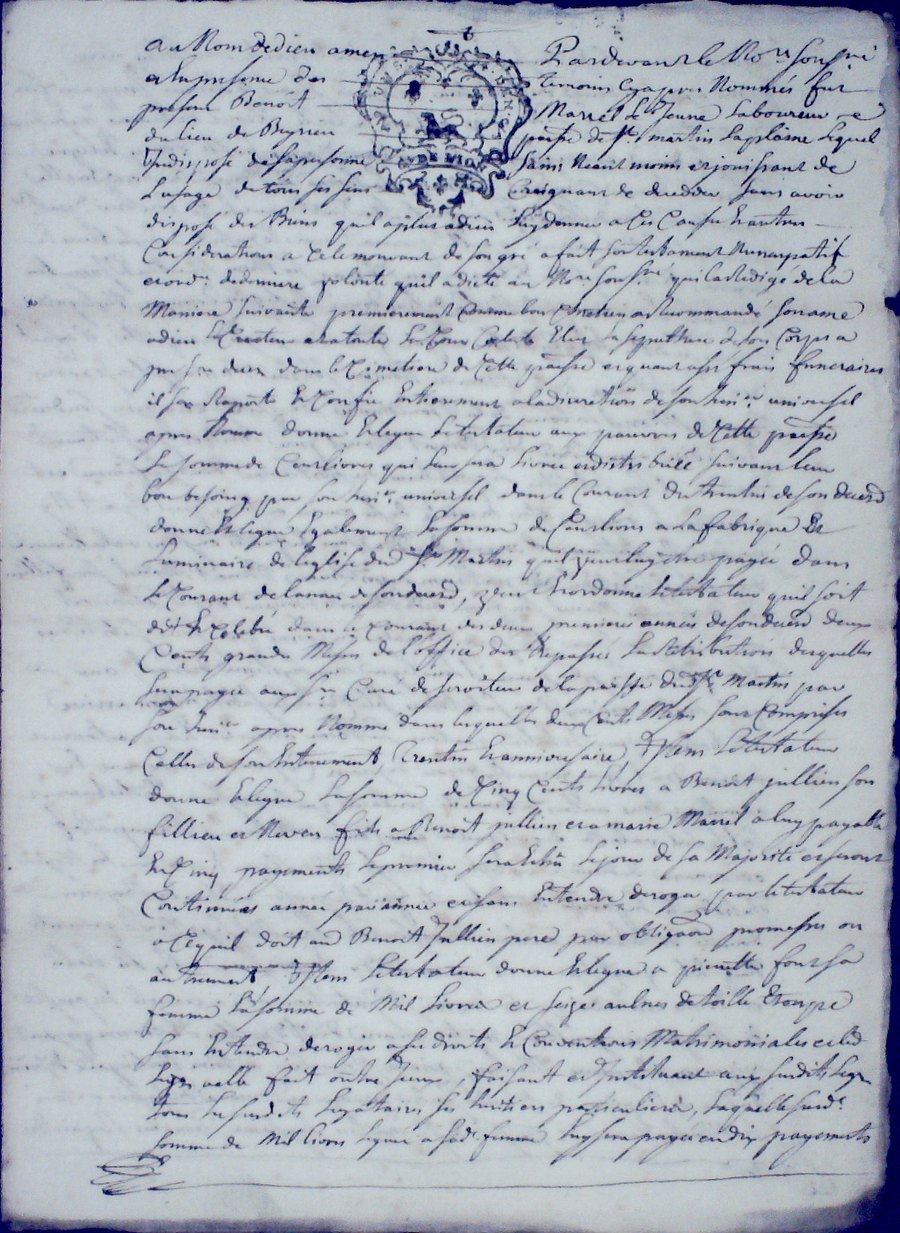 au Nom de dieu amen Pardevant le No.re sousg.né
et En presence des temoins Cyapres Nommés fut
present Benoit Marrel le Jeune Laboureur
du lieu de Beynieu parsse de St. martin Laplaine Lequel
Indisposé de sa personne sain Neantmoins et jouissant de
L usage de tous ses sens Craignant de deceder sans avoir
disposé des Biens quil a plus a dieu Luy donner a Ces Causes Et autres
Considerations a Celle mouvant de son gré a fait son testament Nuncupatif
et ord.re de derniere volonté quil a dicté au No.re sousg.né qui la redigé de la
Maniere suivante premierement Comme bon Chretien a recommandé son ame
a dieu le Createur et a toute La Cour Celeste Elu la sepulture de son Corps
dans le Cimetiere de Cette parsse et quant a ses frais funeraires
il s en Raporte Et Confie Entierement a la discretion de son heri.er universel
apres Nommé donne Et legue Le testateur aux pauvres de Cette parsse
La somme de Cent livres qui leur sera livrée et distribuée suivant leur
bon besoing par son heri.er universel dans le Courant du trentin de son deced
donne Et legue Egalement La somme de Cent livres a La fabrique Et
Luminaire de leglise dud St. Martin quil veut luy etre payée dans
le Courant de lannée de son deced, veut Et ordonne le testateur quil soit
dit Et Celebré dans le Courant des deux premieres années de son deced deux
Cents grandes Messes de l office des trepassés La retribution desquelles
sera payée au sr Curé de servoiteur de la parsse dud St. Martin par
son heri.er apres Nommé dans lesquelles deux Cents Messes sont Comprises
Celles de son Enterrement, trentin Et anniversaire, Item Le testateur
donne Et legue La somme de Cinq Cents livres a Benoit jullien son
fillieu et Neveu fils a Benoit jullien et a marie Marrel a luy payable
En Cinq payements le premier sera Echu le jour de sa Majorité et seront
Continués année par année et sans Entendre deroger par le testateur
a Ce quil doit aud Benoit Jullien pere par obliga.on promesses ou
autrement, Item Le testateur donne Et legue a pierrette sa
femme la somme de Mil Livres et seize aulnes de toille Etoupe
sans Entendre deroger a ses droits Et Conventions Matrimoniales et led
legs a elle fait outre Iceux, faisant et Instituant aux susdits legs
tous les susdits legataires ses heritiers particuliers, laquelle susd.e
somme de Mil livres leguée a sad. femme luy sera payée en dix payements